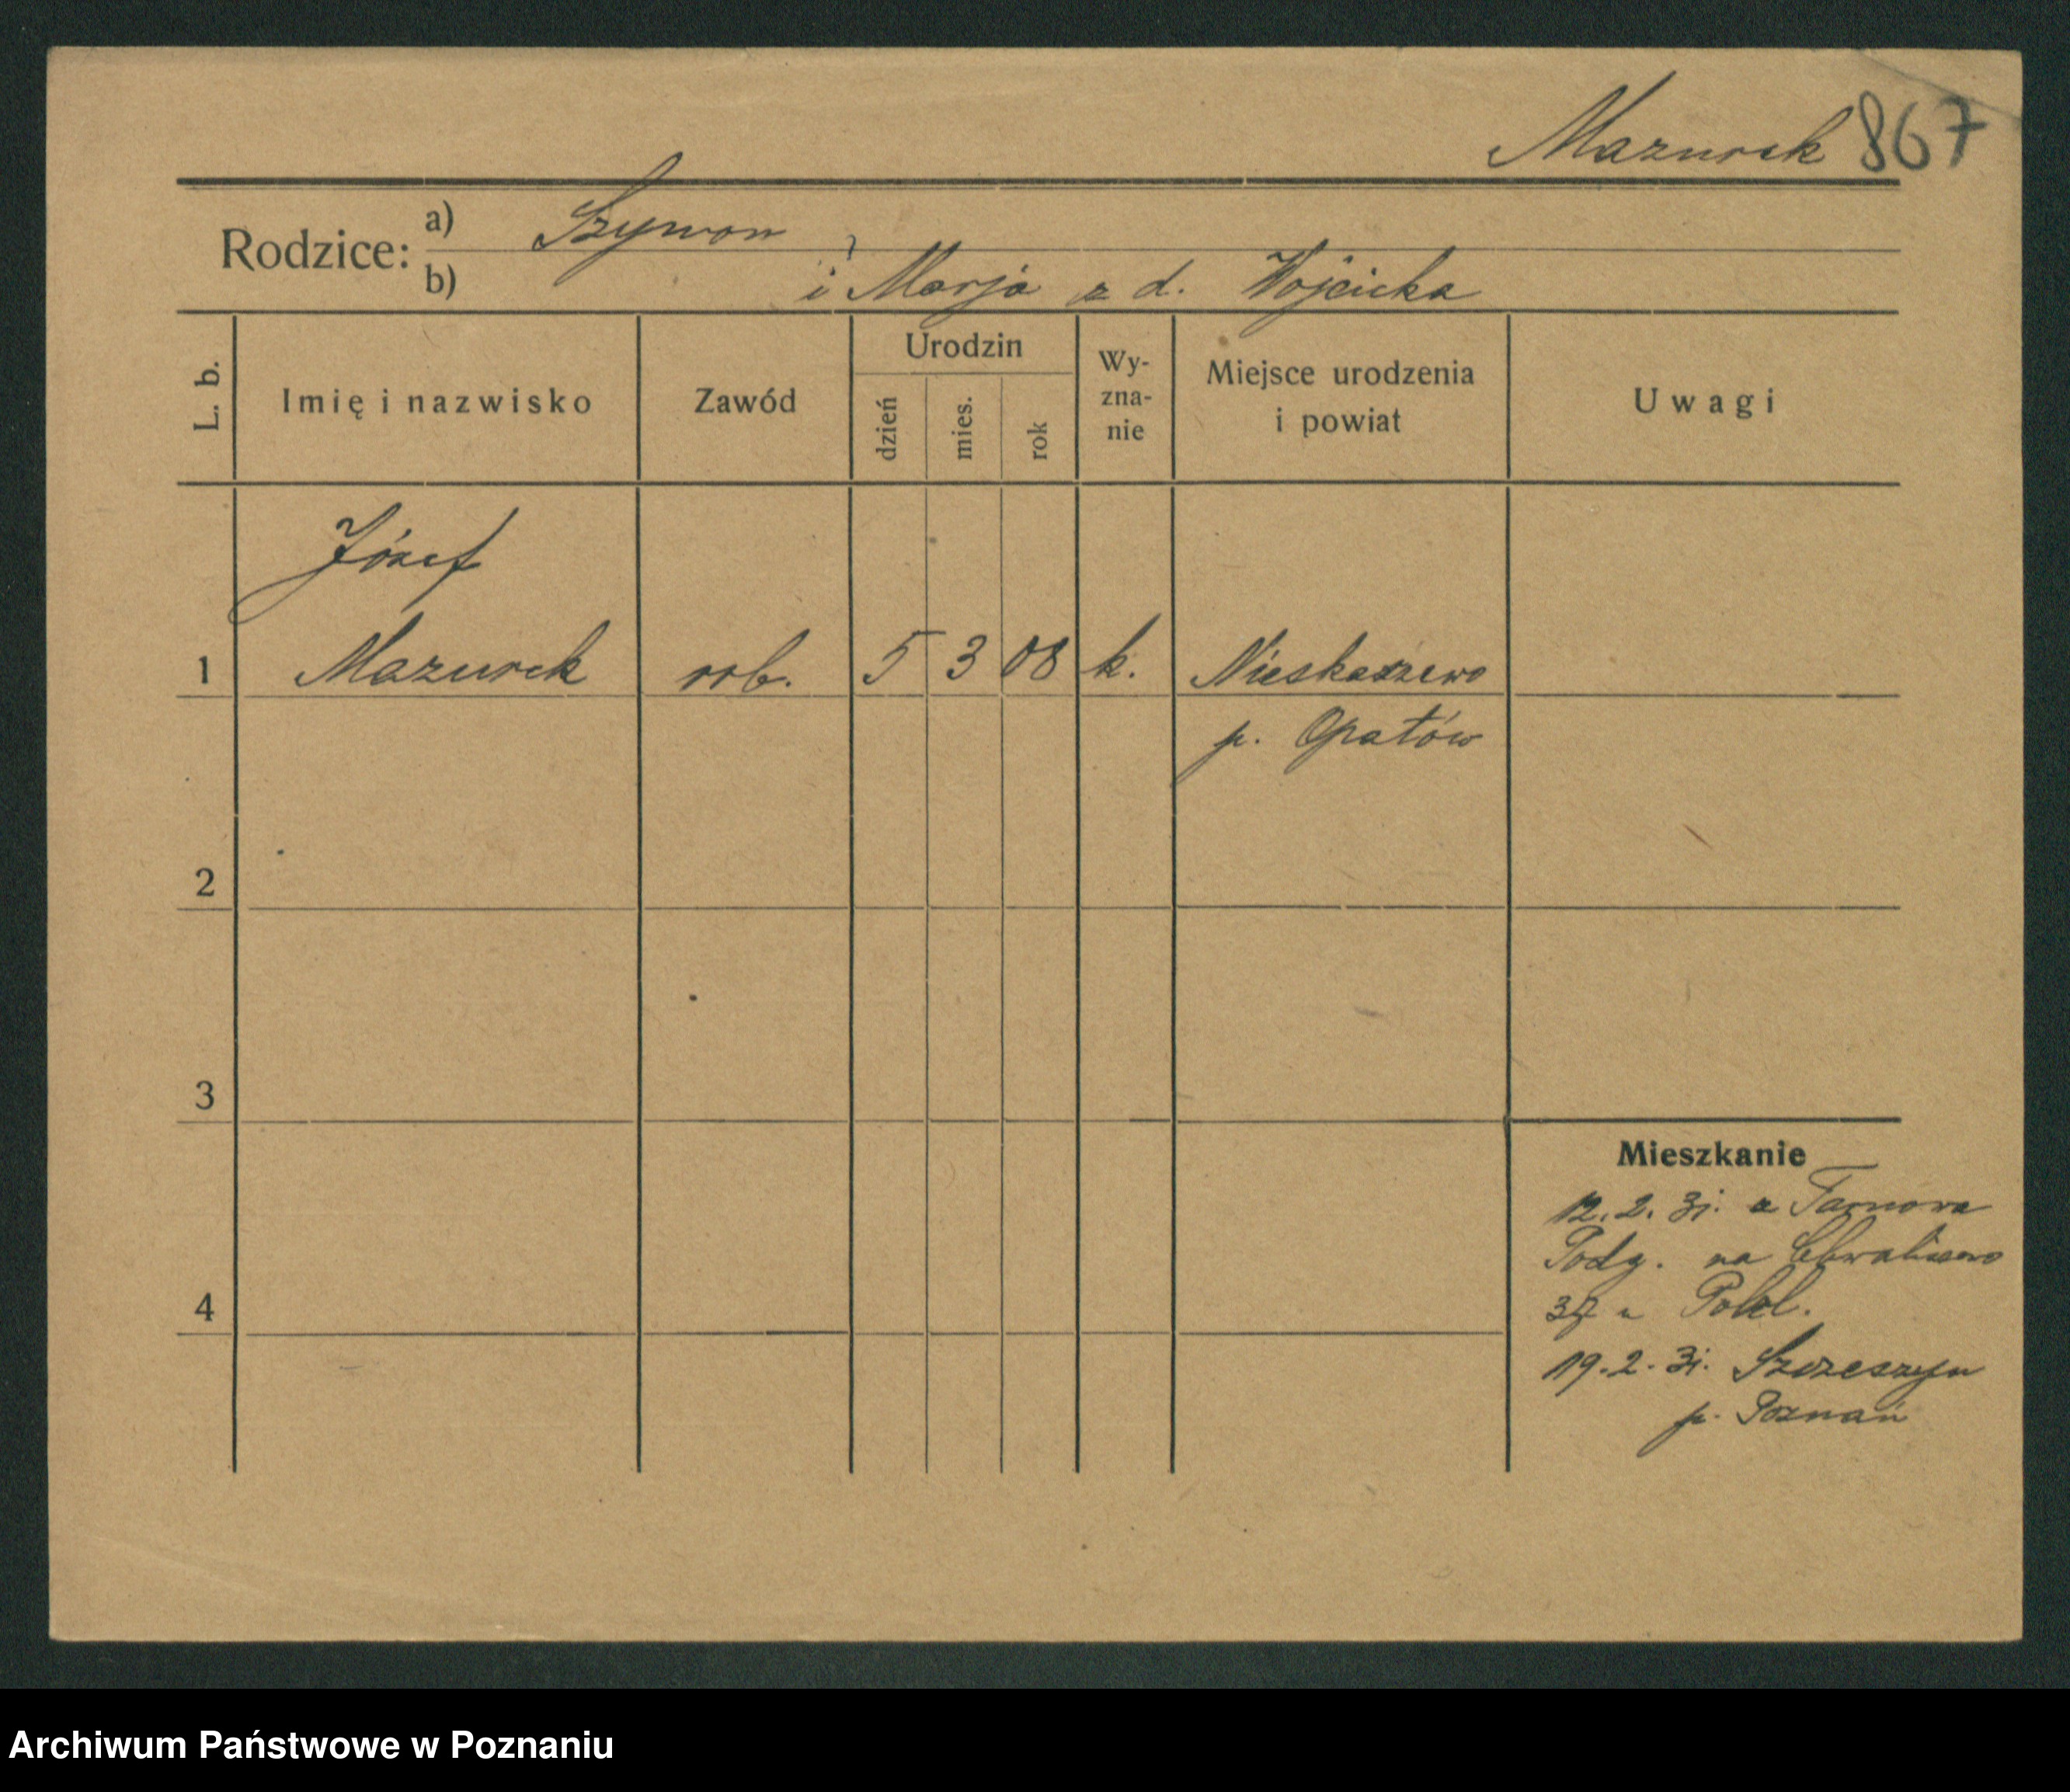 Mazurek 867
Rodzice:
a) Szymon
b) i Marja z d. Wojcicka
L. b.
Imię i nazwisko
Zawód
Urodzin
dzień
mies.
rok
Wy-
zna-
nie
Miejsce urodzenia
i powiat
Uwagi
Józef
1 Mazurek rob. 5 3 08 k. Nieskaszewo
p. Opatów
2
3
4
Mieszkanie
12. 2. 31. z Tarnowa
Podg. na Chwaliszewo
37 u Pohl.
19. 2. 31. Szczeszyn
p. Poznań
Archiwum Państwowe w Poznaniu